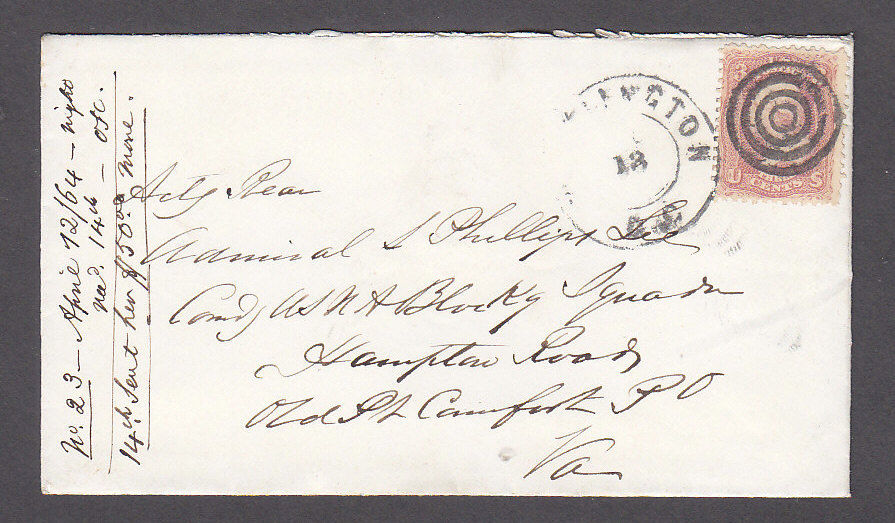 No. 23 — April 12/64 — night
recd. 14th — OK.
14th Sent her $50.00 more.
INGTON
13
D.C.
3
U S
CENTS
Actg Rear
Admiral S Phillips Lee
Comdg USNA Blockg Squadn
Hampton Roads
Old Pt Comfort P O
Va